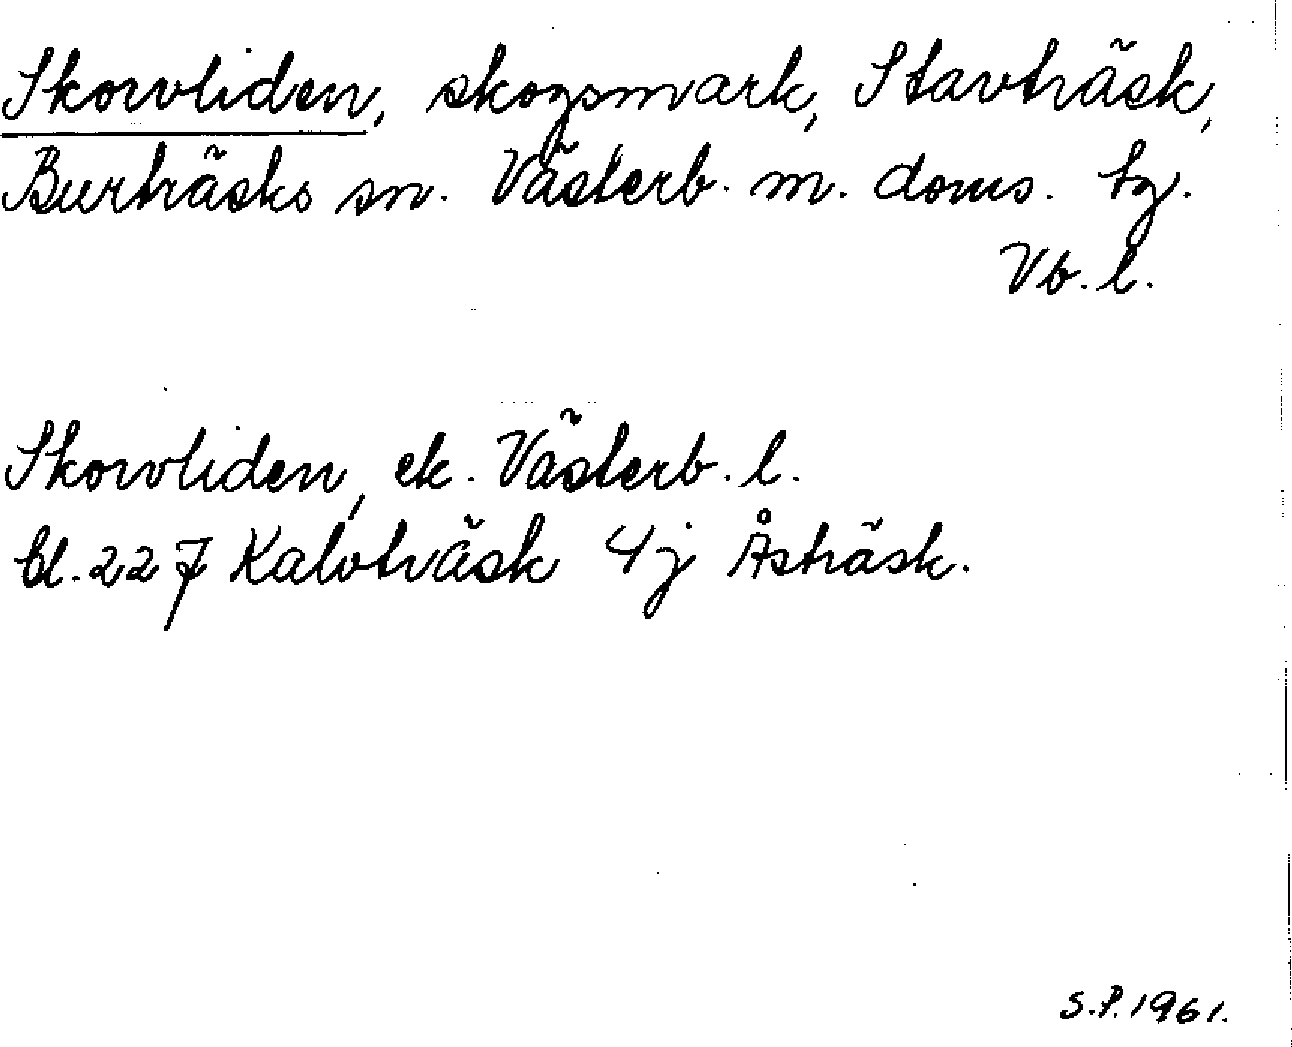 Skorvliden, skogsmark, Stavträsk,
Burträsks sn. Västerb. m. doms. tg.
Vb. l.
Skorvliden, ek. Västerb. l.
bl. 227 Kalvträsk 4j Åsträsk.
S.P. 1961.